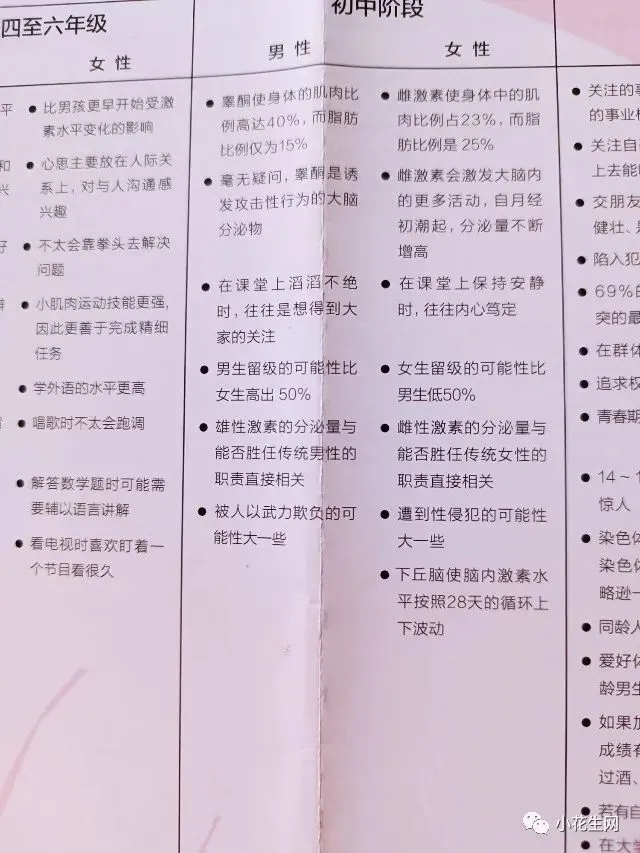 四至六年级
女 性
平
● 比男孩更早开始受激
素水平变化的影响
和
兴
● 心思主要放在人际关
系上，对与人沟通感
兴趣
好
● 不太会靠拳头去解决
问题
● 小肌肉运动技能更强,
因此更善于完成精细
任务
● 学外语的水平更高
● 唱歌时不太会跑调
● 解答数学题时可能需
要辅以语言讲解
● 看电视时喜欢盯着一
个节目看很久
初中阶段
男 性
● 睾酮使身体的肌肉比
例高达40%，而脂肪
比例仅为15%
● 毫无疑问，睾酮是诱
发攻击性行为的大脑
分泌物
● 在课堂上滔滔不绝
时，往往是想得到大
家的关注
● 男生留级的可能性比
女生高出 50%
● 雄性激素的分泌量与
能否胜任传统男性的
职责直接相关
● 被人以武力欺负的可
能性大一些
女 性
● 雌激素使身体中的肌
肉比例占23%，而脂
肪比例是 25%
● 雌激素会激发大脑内
的更多活动，自月经
初潮起，分泌量不断
增高
● 在课堂上保持安静
时，往往内心笃定
● 女生留级的可能性比
男生低50%
● 雌性激素的分泌量与
能否胜任传统女性的
职责直接相关
● 遭到性侵犯的可能性
大一些
● 下丘脑使脑内激素水
平按照28天的循环上
下波动
● 关注的事
的事业
● 关注自
上去能
● 交朋友
健壮、
● 陷入犯
● 69%的
突的最
● 在群体
● 追求权
● 青春期
● 14～1
惊人
● 染色体
染色体
略逊一
● 同龄人
● 爱好体
龄男生
● 如果加
成绩有
过酒、
● 若有自
● 在大
小花生网